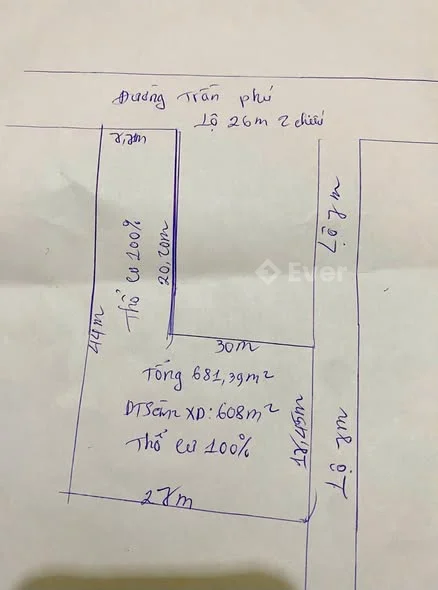 Đường Trần phú
Lộ 26m 2 chiều
7,7m
Thổ cư 100%
20,20m
Lộ 7m
Ever
44m
30m
Tổng 681,39m²
DTSàn XD: 608m²
Thổ cư 100%
17,45m
Lộ 7m
27m